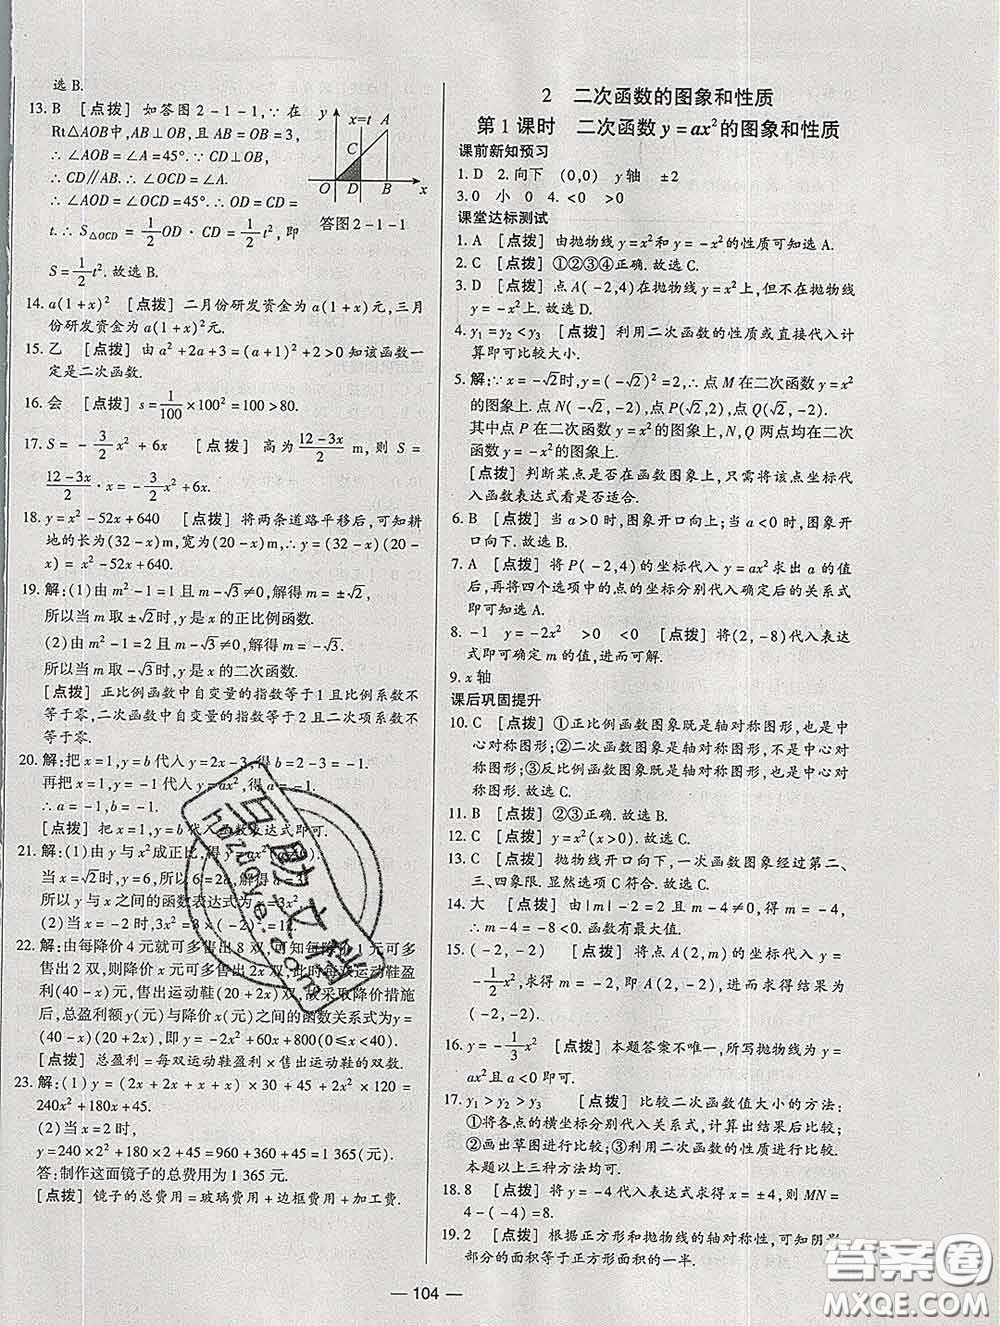 选 B.
13. B [点拨] 如答图 2-1-1, ∵ 在
Rt△AOB中, AB⊥OB, 且 AB = OB = 3,
∴ ∠AOB = ∠A = 45°. ∵ CD⊥OB,
∴ CD∥AB. ∴ ∠OCD = ∠A.
∴ ∠AOD = ∠OCD = 45°. ∴ OD = CD =
t. ∴ S△OCD = 1/2 OD · CD = 1/2 t², 即
S = 1/2 t². 故选 B.
y x=t A
C
O D B x
答图 2-1-1
14. a(1+x)² [点拨] 二月份研发资金为 a(1+x)元, 三月
份研发资金为 a(1+x)²元.
15. 乙 [点拨] 由 a²+2a+3=(a+1)²+2>0 知该函数一
定是二次函数.
16. 会 [点拨] s = 1/100 × 100² = 100 > 80.
17. S = -3/2 x² + 6x [点拨] 高为 (12-3x)/2 m, 则 S =
(12-3x)/2 · x = -3/2 x² + 6x.
18. y = x² - 52x + 640 [点拨] 将两条道路平移后, 可知耕
地的长为(32-x)m, 宽为(20-x)m, ∴ y = (32-x)(20-
x) = x² - 52x + 640.
19. 解: (1)由 m²-1=1 且 m-√3≠0, 解得 m = ±√2,
所以当 m 取 ±√2时, y 是 x 的正比例函数.
(2)由 m²-1=2 且 m-√3≠0, 解得 m = -√3.
所以当 m 取 -√3时, y 是 x 的二次函数.
[点拨] 正比例函数中自变量的指数等于 1 且比例系数不
等于零, 二次函数中自变量的指数等于 2 且二次项系数
不等于零.
20. 解: 把 x=1, y=b 代入 y=2x-3, 得 b=2-3=-1.
再把 x=1, y=-1 代入 y=ax², 得 a=-1.
∴ a=-1, b=-1.
[点拨] 把 x=1, y=b 代入函数表达式即可.
21. 解: (1)由 y 与 x²成正比, 得 y=ax²(a≠0).
当 x=√2时, y=6, ∴ 6=2a, 解得 a=3.
所以 y 与 x 之间的函数表达式为 y=3x².
(2)当 x=-2 时, y=3×(-2)²=12.
22. 解: 由每降价 4 元就可多售出 8 双, 可知每降价 1 元可多
售出 2 双, 则降价 x 元可多售出 2x 双, 此时每双运动鞋盈
利(40-x)元, 售出运动鞋(20+2x)双, 故采取降价措施
后, 总盈利额 y(元)与降价 x(元)之间的函数关系式为 y=
(40-x)(20+2x), 即 y=-2x²+60x+800(0≤x<40).
[点拨] 总盈利=每双运动鞋盈利×售出运动鞋的双数.
23. 解: (1) y = (2x+2x+x+x)×30+45+2x²×120=
240x²+180x+45.
(2)当 x=2 时,
y=240×2²+180×2+45=960+360+45=1 365(元).
答: 制作这面镜子的总费用为 1 365 元.
[点拨] 镜子的总费用=玻璃费用+边框费用+加工费.
2 二次函数的图象和性质
第 1 课时 二次函数 y=ax²的图象和性质
课前新知预习
1. D 2. 向下 (0,0) y 轴 ±2
3. 0 小 0 4. <0 >0
课堂达标测试
1. A [点拨] 由抛物线 y=x²和 y=-x²的性质可知选 A.
2. C [点拨] ①②③④正确. 故选 C.
3. D [点拨] 点 A(-2,4)在抛物线 y=x²上, 但不在抛物线
y=-x²上. 故选 D.
4. y₁=y₂<y₃ [点拨] 利用二次函数的性质或直接代入计
算即可比较大小.
5. 解: ∵ x=-√2时, y=(-√2)²=2, ∴ 点 M 在二次函数 y=x²
的图象上. 点 N(-√2,-2), 点 P(√2,2), 点 Q(√2,-2).
其中点 P 在二次函数 y=x²的图象上, N, Q 两点均在二次
函数 y=-x²的图象上.
[点拨] 判断某点是否在函数图象上, 只需将该点坐标代
入函数表达式看是否适合.
6. B [点拨] 当 a>0 时, 图象开口向上; 当 a<0 时, 图象开
口向下. 故选 B.
7. A [点拨] 将 P(-2,4)的坐标代入 y=ax²求出 a 的值
后, 再将四个选项中的点的坐标分别代入确定后的关系式
即可知选 A.
8. -1 y=-2x² >0 <0 [点拨] 将(2,-8)代入表达
式即可确定 m 的值, 进而可解.
9. x 轴
课后巩固提升
10. C [点拨] ①正比例函数图象既是轴对称图形, 也是中
心对称图形; ②二次函数图象是轴对称图形, 不是中心对
称图形; ③反比例函数图象既是轴对称图形, 也是中心对
称图形. 故选 C.
11. B [点拨] ②③正确. 故选 B.
12. C [点拨] y=x²(x>0). 故选 C.
13. C [点拨] 抛物线开口向下, 一次函数图象经过第二、
三、四象限. 显然选项 C 符合. 故选 C.
14. 大 [点拨] 由|m|-2=2 且 m-4≠0, 得 m=-4.
∴ m-4=-8<0. 函数有最大值.
15. (-2,-2) [点拨] 将点 A(2,m)的坐标代入 y=
-1/2 x²求得 m=-2. ∵ A(2,-2), 进而得出所求结果为
(-2,-2).
16. y=-1/3 x² [点拨] 本题答案不唯一, 所写抛物线为 y=
ax²且 a<0 即可.
17. y₁>y₂>y₃ [点拨] 比较二次函数值大小的方法:
①将各点的横坐标分别代入关系式, 计算出结果后比较;
②画出草图进行比较; ③利用二次函数的性质进行比较.
本题以上三种方法均可.
18. 8 [点拨] 将 y=-4 代入表达式求得 x=±4, 则 MN=
4-(-4)=8.
19. 2 [点拨] 根据正方形和抛物线的轴对称性, 可知阴影
部分的面积等于正方形面积的一半.
— 104 —
答案圈
MXQE.COM